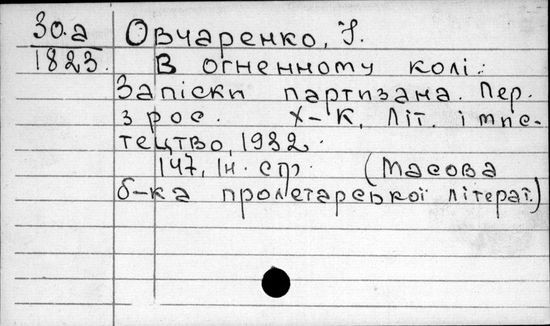 30.а Овчаренко, І.
1823. В огненному колі:
Записки партизана. Пер.
з рос. Х-К, Літ. і мис-
тецтво, 1932.
147, Ін. ст. (Масова
б-ка пролетарської літерат.)